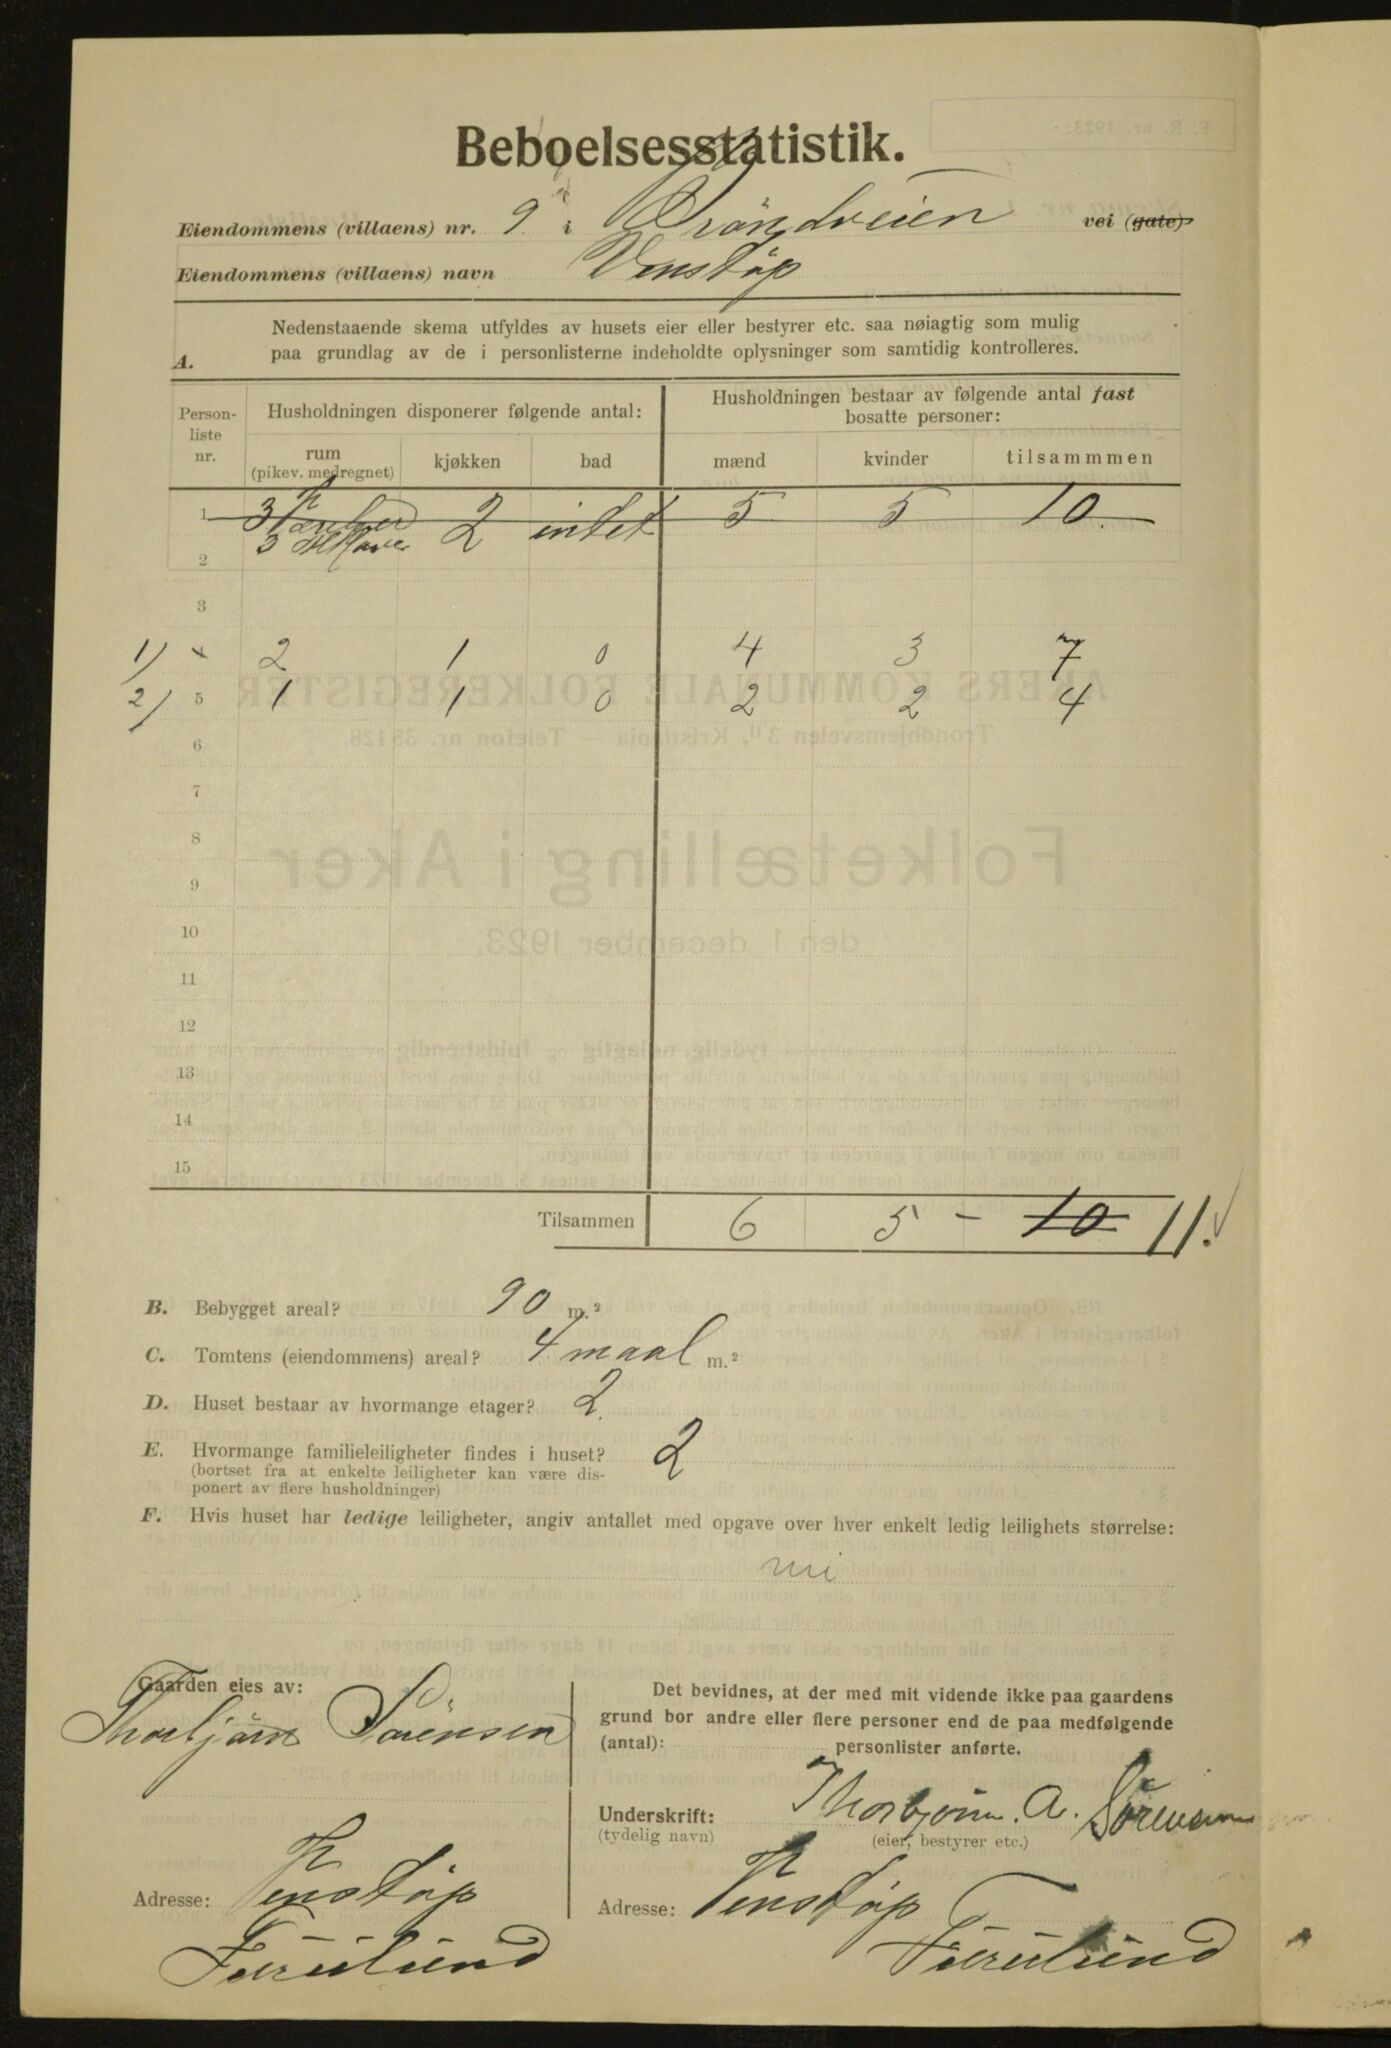 Beboelsesstatistik.
Eiendommens (villaens) nr. 9 i Tröndveien vei (gate)
Eiendommens (villaens) navn Venstöp
A. Nedenstaaende skema utfyldes av husets eier eller bestyrer etc. saa nøiagtig som mulig
paa grundlag av de i personlisterne indeholdte oplysninger som samtidig kontrolleres.
Person-liste nr. Husholdningen disponerer følgende antal: Husholdningen bestaar av følgende antal fast bosatte personer:
rum (pikev. medregnet) kjøkken bad mænd kvinder tilsammmen
1 3 2 intet 5 5 10
2 3
3
1) 4 2 1 0 4 3 7
2) 5 1 1 0 2 2 4
6
7
8
9
10
11
12
13
14
15
Tilsammen 6 5 - 10 11.
B. Bebygget areal? 90 m.²
C. Tomtens (eiendommens) areal? 4 maal m.²
D. Huset bestaar av hvormange etager? 2
E. Hvormange familieleiligheter findes i huset? 2
(bortset fra at enkelte leiligheter kan være dis-
ponert av flere husholdninger)
F. Hvis huset har ledige leiligheter, angiv antallet med opgave over hver enkelt ledig leilighets størrelse:
Gaarden eies av:
Thorbjörn Sörensen
Adresse: Venstöp
Furulund
Det bevidnes, at der med mit vidende ikke paa gaardens
grund bor andre eller flere personer end de paa medfølgende
(antal): personlister anførte.
Underskrift: Thorbjörn A. Sörensen
(tydelig navn) (eier, bestyrer etc.)
Adresse: Venstöp
Furulund